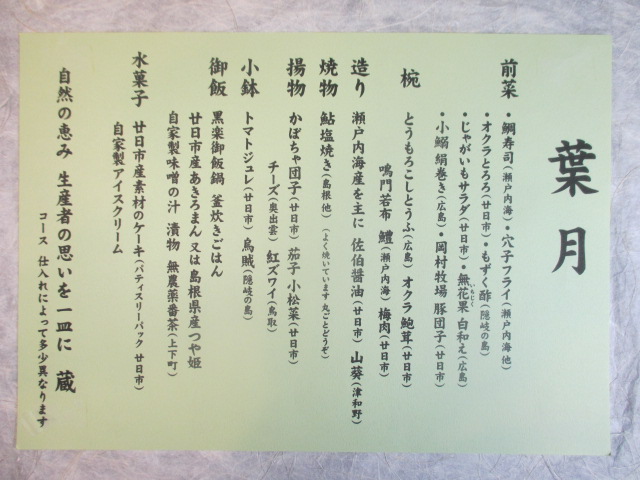 葉月
前菜 ・鯛寿司(瀬戸内海)・穴子フライ(瀬戸内海他)
・オクラとろろ(廿日市)・もずく酢(隠岐の島)
・じゃがいもサラダ(廿日市)・無花果 白和え(広島)
いちじく
・小鰯 絹巻き(広島)・岡村牧場 豚団子(廿日市)
椀 とうもろこしとうふ(広島) オクラ 鮑茸(廿日市)
鳴門若布 鱧(瀬戸内海) 梅肉(廿日市)
造り 瀬戸内海産を主に 佐伯醤油(廿日市) 山葵(津和野)
焼物 鮎塩焼き(島根他) (よく焼いています 丸ごとどうぞ)
揚物 かぼちゃ団子(廿日市) 茄子 小松菜(廿日市)
チーズ(奥出雲) 紅ズワイ(鳥取)
小鉢 トマトジュレ(廿日市) 烏賊(隠岐の島)
御飯 黒楽御飯鍋 釜炊きごはん
廿日市産あきろまん 又は 島根県産つや姫
自家製味噌の汁 漬物 無農薬番茶(上下町)
水菓子 廿日市産素材のケーキ(パティスリーパック 廿日市)
自家製アイスクリーム
自然の恵み 生産者の思いを一皿に 蔵
コース 仕入れによって多少異なります